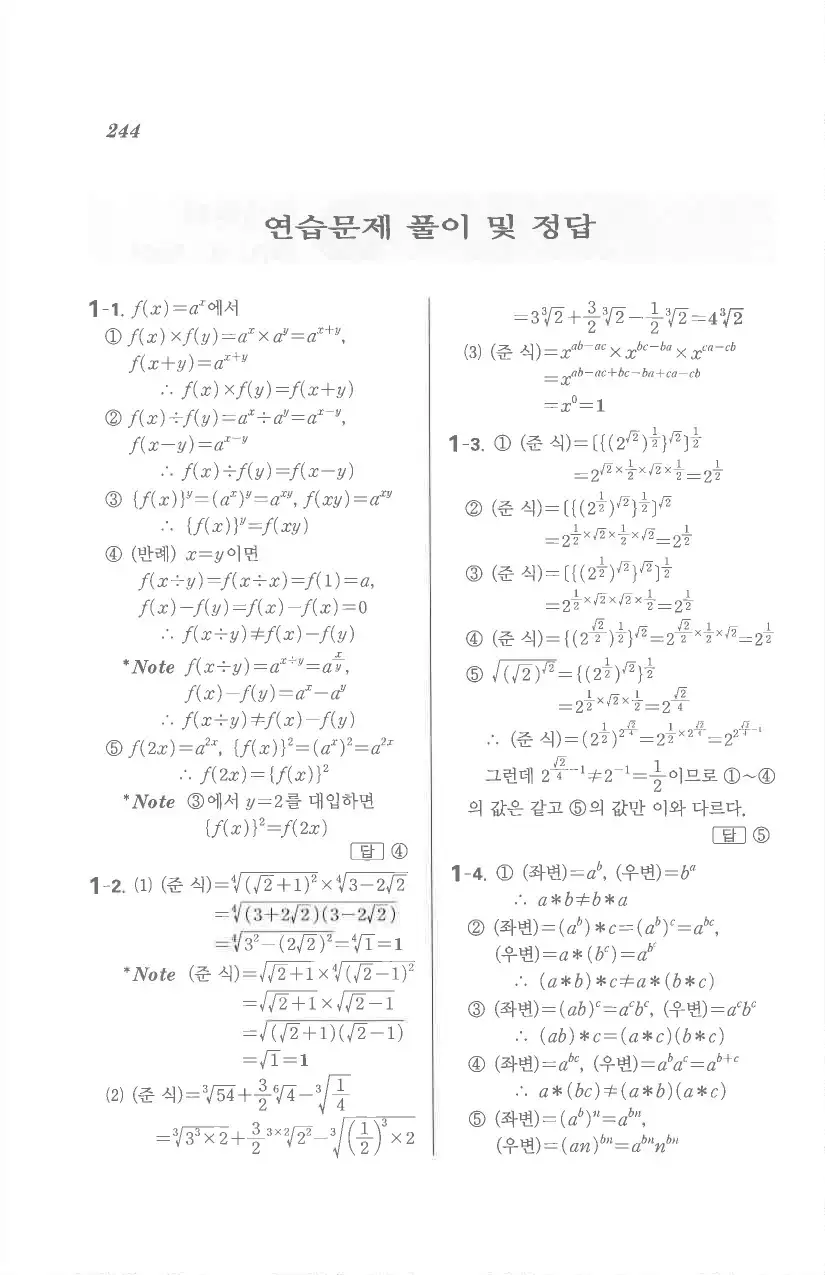 244
연습문제 풀이 및 정답
1-1. f(x)=aˣ에서
① f(x)×f(y)=aˣ×aʸ=aˣ⁺ʸ,
f(x+y)=aˣ⁺ʸ
∴ f(x)×f(y)=f(x+y)
② f(x)÷f(y)=aˣ÷aʸ=aˣ⁻ʸ,
f(x−y)=aˣ⁻ʸ
∴ f(x)÷f(y)=f(x−y)
③ {f(x)}ʸ=(aˣ)ʸ=aˣʸ, f(xy)=aˣʸ
∴ {f(x)}ʸ=f(xy)
④ (반례) x=y이면
f(x÷y)=f(x÷x)=f(1)=a,
f(x)−f(y)=f(x)−f(x)=0
∴ f(x÷y)≠f(x)−f(y)
*Note f(x÷y)=a^(x÷y)=a^(x/y),
f(x)−f(y)=aˣ−aʸ
∴ f(x÷y)≠f(x)−f(y)
⑤ f(2x)=a²ˣ, {f(x)}²=(aˣ)²=a²ˣ
∴ f(2x)={f(x)}²
*Note ③에서 y=2를 대입하면
{f(x)}²=f(2x)
답 ④
1-2. (1) (준 식)=∜((√2+1)²)×∜(3−2√2)
=∜((3+2√2)(3−2√2))
=∜(3²−(2√2)²)=∜1=1
*Note (준 식)=√(√2+1)×∜((√2−1)²)
=√(√2+1)×√(√2−1)
=√((√2+1)(√2−1))
=√1=1
(2) (준 식)=∛54+(3/2)⁶√4−∛(1/4)
=∛(3³×2)+(3/2)³ˣ²√(2²)−∛((1/2)³×2)
=3∛2+(3/2)∛2−(1/2)∛2=4∛2
(3) (준 식)=x^(ab−ac)×x^(bc−ba)×x^(ca−cb)
=x^(ab−ac+bc−ba+ca−cb)
=x⁰=1
1-3. ① (준 식)=[{(2^√2)^(1/2)}^√2]^(1/2)
=2^(√2×1/2×√2×1/2)=2^(1/2)
② (준 식)=[{(2^(1/2))^√2}^(1/2)]^√2
=2^(1/2×√2×1/2×√2)=2^(1/2)
③ (준 식)=[{(2^(1/2))^√2}^√2]^(1/2)
=2^(1/2×√2×√2×1/2)=2^(1/2)
④ (준 식)={(2^(√2/2))^(1/2)}^√2=2^(√2/2×1/2×√2)=2^(1/2)
⑤ √((√2)^√2)={(2^(1/2))^√2}^(1/2)
=2^(1/2×√2×1/2)=2^(√2/4)
∴ (준 식)=(2^(1/2))^(2^(√2/4))=2^(1/2×2^(√2/4))=2^(2^(√2/4−1))
그런데 2^(√2/4−1)≠2⁻¹=1/2이므로 ①~④
의 값은 같고 ⑤의 값만 이와 다르다.
답 ⑤
1-4. ① (좌변)=aᵇ, (우변)=bᵃ
∴ a*b≠b*a
② (좌변)=(aᵇ)*c=(aᵇ)ᶜ=aᵇᶜ,
(우변)=a*(bᶜ)=a^(bᶜ)
∴ (a*b)*c≠a*(b*c)
③ (좌변)=(ab)ᶜ=aᶜbᶜ, (우변)=aᶜbᶜ
∴ (ab)*c=(a*c)(b*c)
④ (좌변)=aᵇᶜ, (우변)=aᵇaᶜ=aᵇ⁺ᶜ
∴ a*(bc)≠(a*b)(a*c)
⑤ (좌변)=(aᵇ)ⁿ=aᵇⁿ,
(우변)=(an)ᵇⁿ=aᵇⁿnᵇⁿ